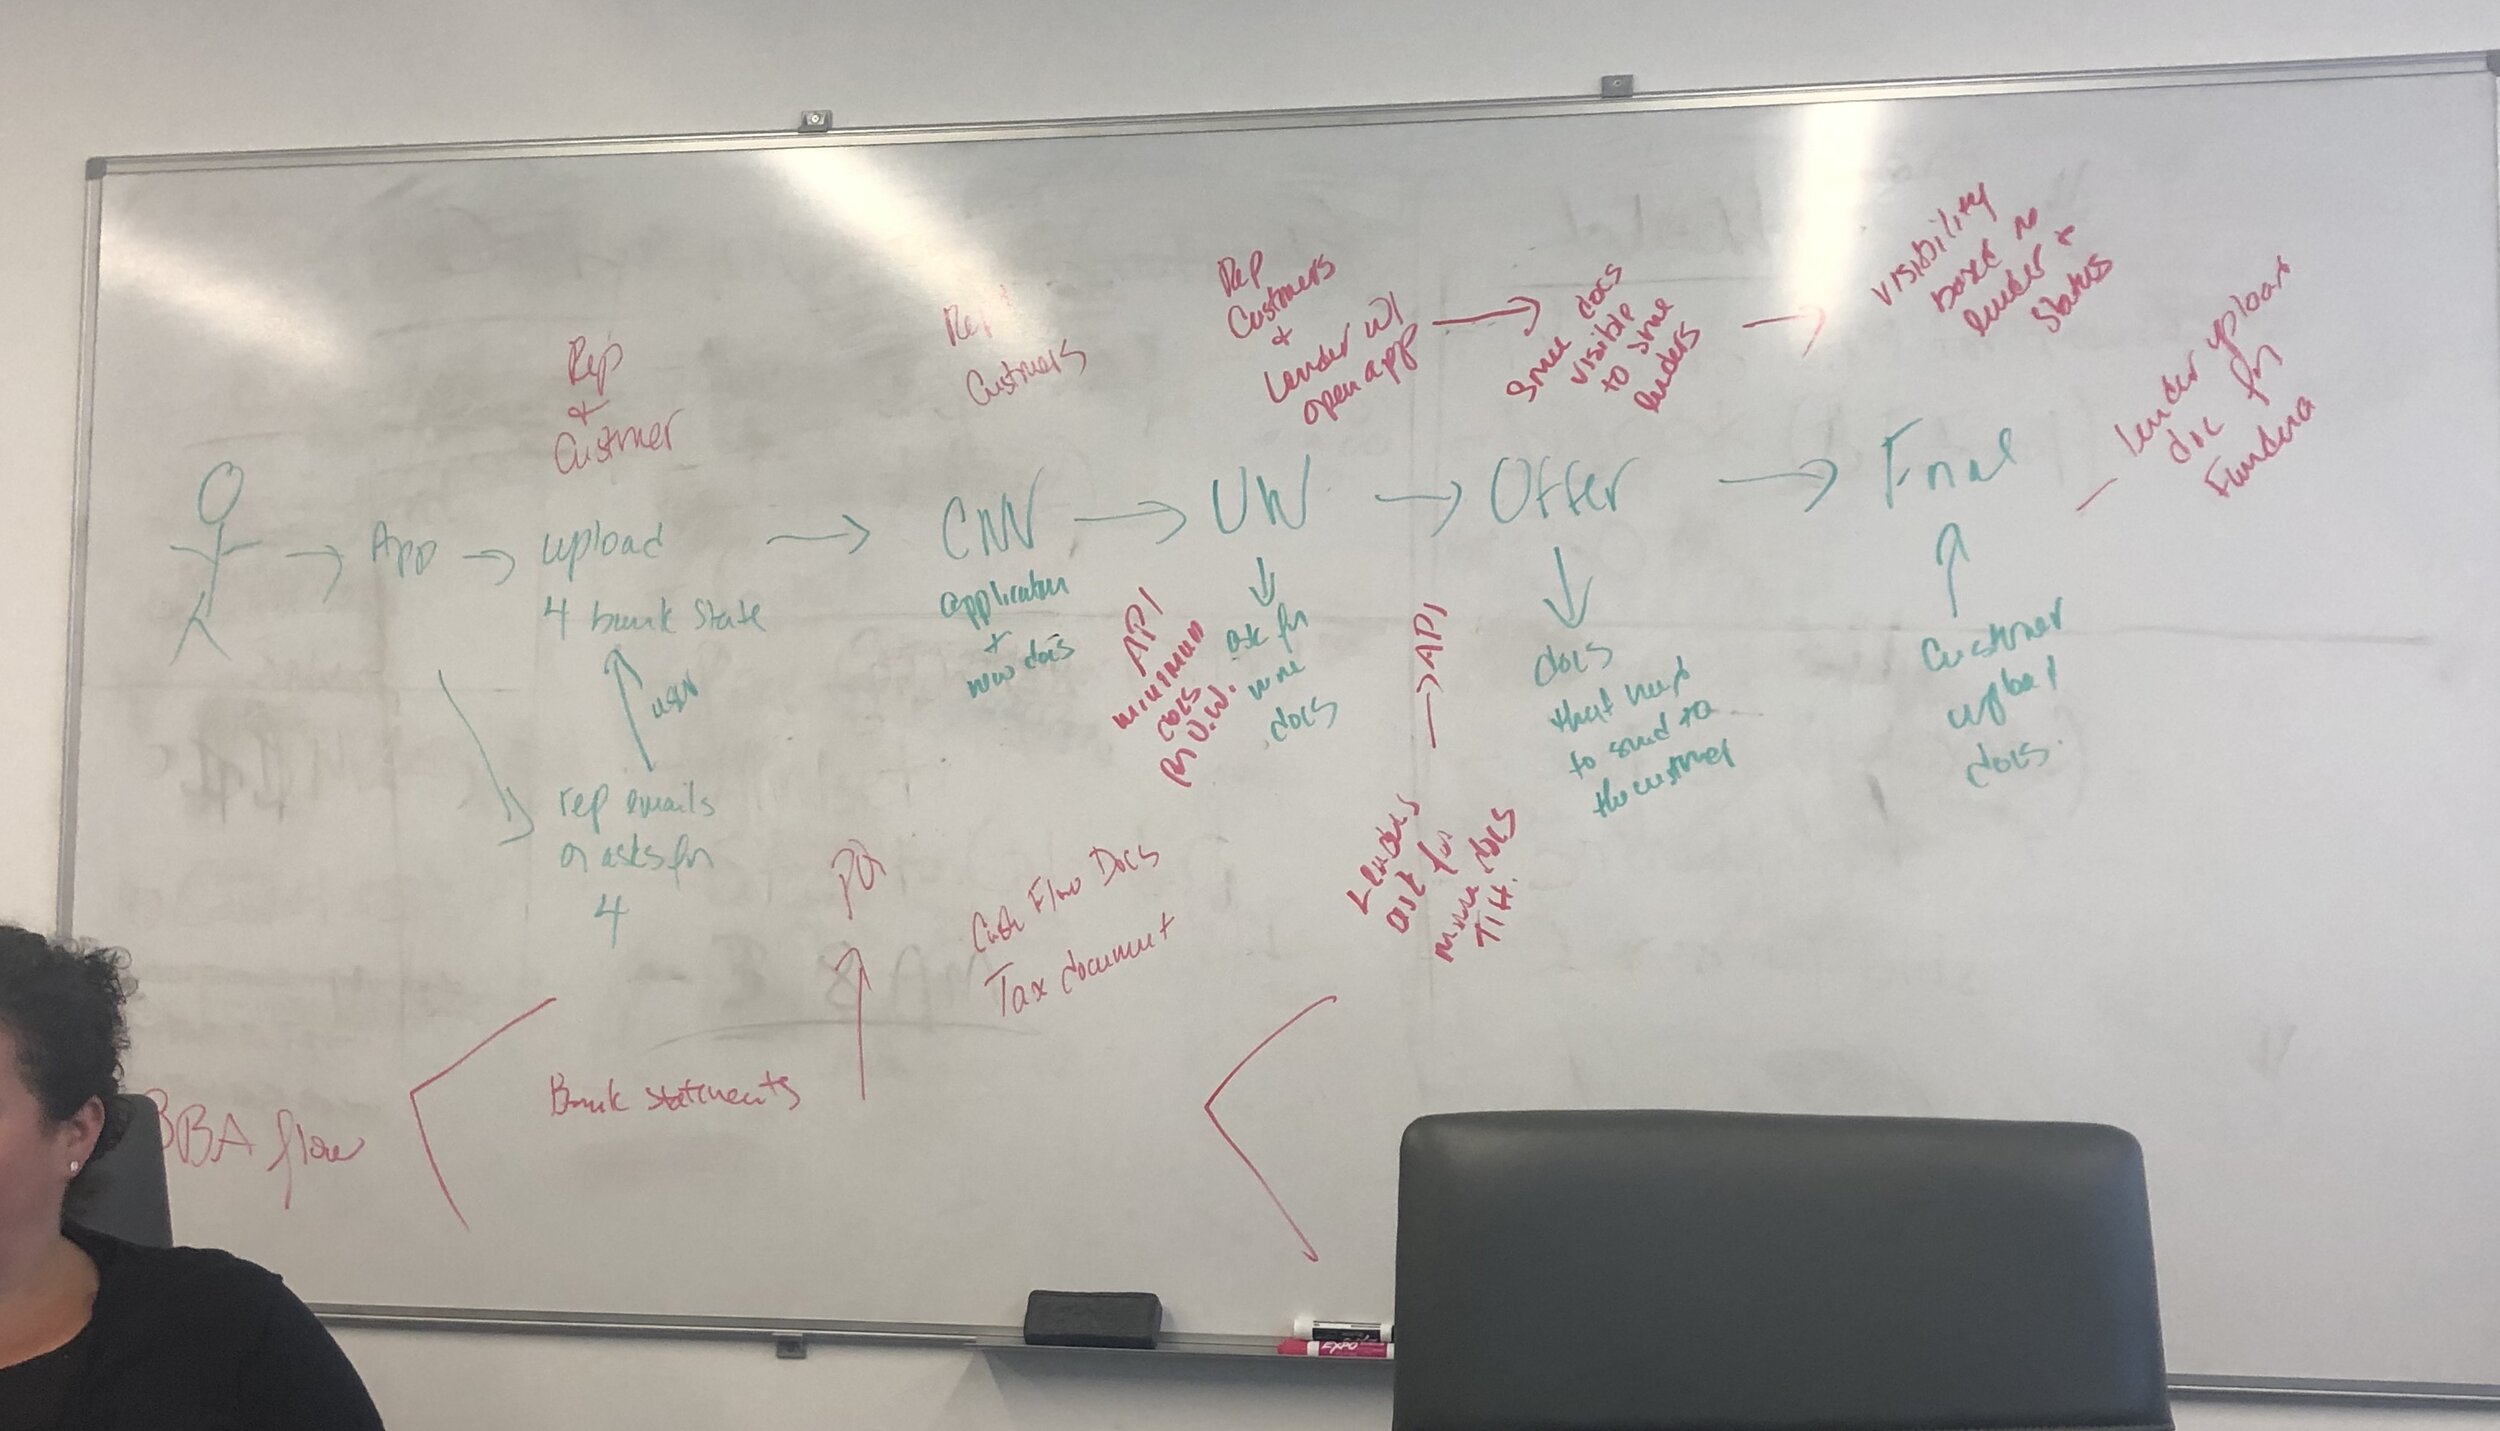 Rep
&
Customer
Rep
Customers
Rep
Customers
+
Lender w/
open app
Some docs
visible
to some
lenders
visibility
lender +
status
lender upload
doc for
Fundera
App
upload
4 bank State
user
rep emails
or asks for
4
CNN
application
+
docs
UW
ask for
more
docs
Offer
docs
that
to send to
the customer
Final
Customer
upload
docs
API
minimum
docs
for U.W.
API
Lenders
ask for
more docs
PQ
Cash Flow Docs
Tax document
BBA flow
Bank statements
EXPO